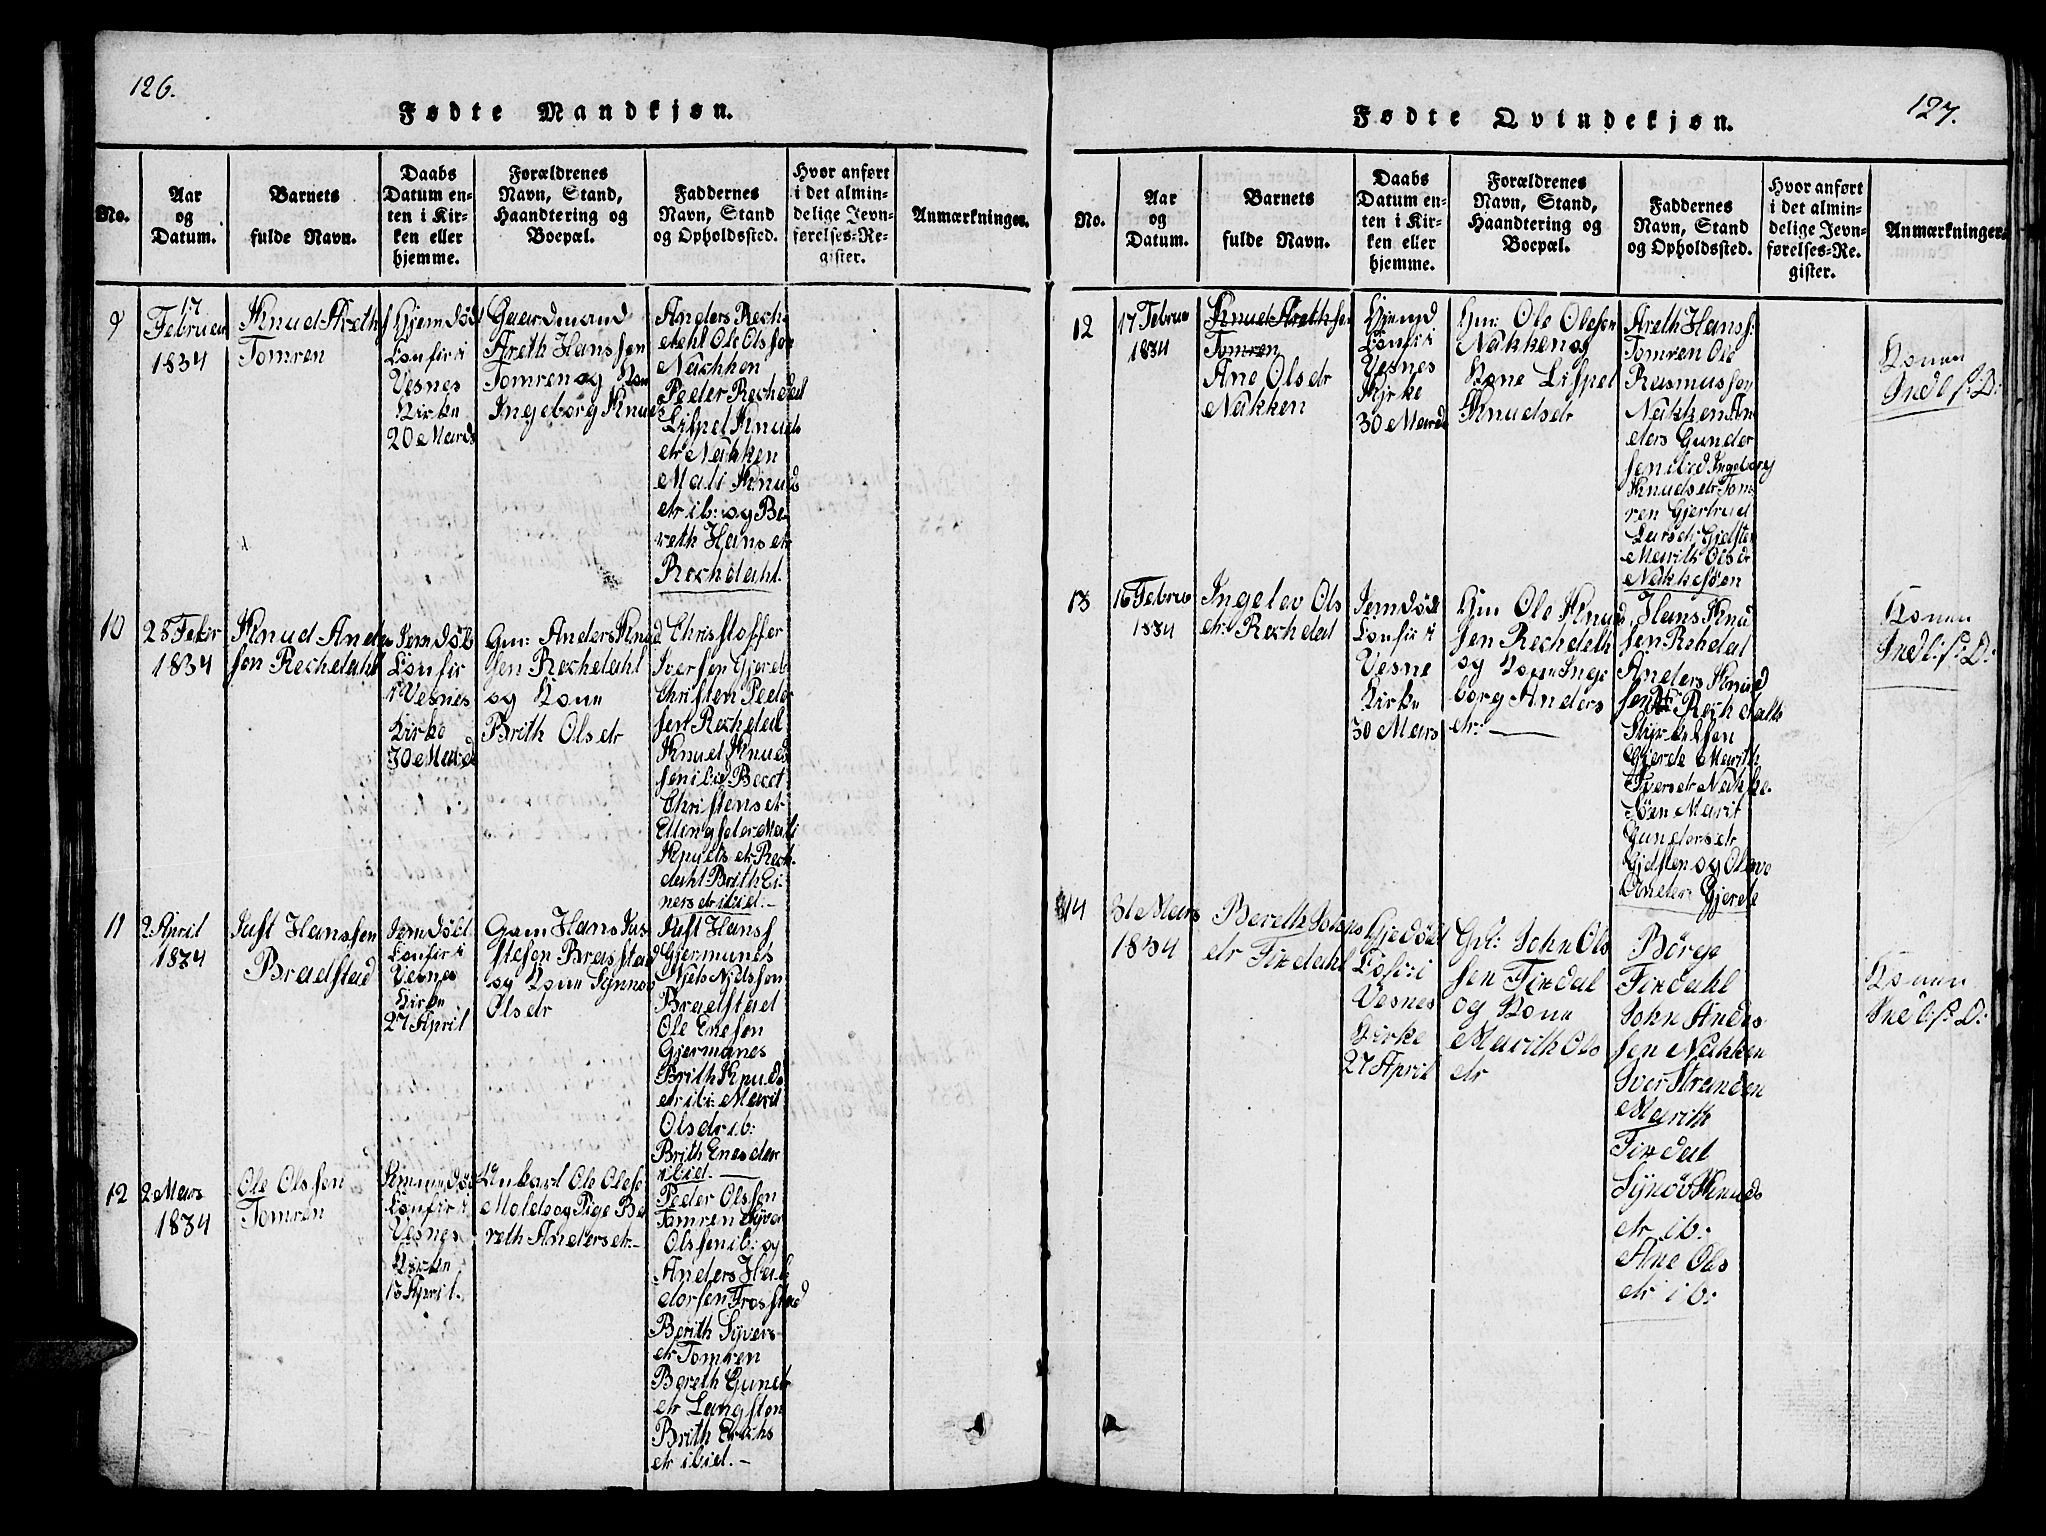 126.
Fødte Mandkjøn.
No.
Aar
og
Datum.
Barnets
fulde Navn.
Daabs
Datum en-
ten i Kir-
ken eller
hjemme.
Forældrenes
Navn, Stand,
Haandtering og
Boepæl.
Faddernes
Navn, Stand
og Opholdssted.
Hvor anført
i det almin-
delige Jevn-
førelses-Re-
gister.
Anmærkninger.
9
17
Februar
1834
Knud Areths
Tomren
Hjemdøbt
Confir i
Vesnes
Kirke
20 Mards
Gaardmand
Areth Hanssen
Tomren og Kone
Ingeborg Knuds
Anders Rech-
dahl Ole Olsen
Nachken
Peder Rechdal
Lispet Knuds
dr Nakken
Mali Knuds
dr ib: og Be-
reth Hansdr
Rechdahl.
10
28 Febr
1834
Knud Anders
sen Rechdahl
Jemdøbt
Confir
i Vesnes
Kirke
30 Mard
Gm: Anders Knud
sen Rechdahl
og Kone
Brith Olsdr
Christoffer
Iversen Gjerde
Christen Peder
sen Rechdal
Knud Knuds
sen ibid Beret
Christensdr
Ellingseter Mali
Knudsdr Rech-
dahl Brith Ei-
nersdr ibid.-
11
2 April
1834
Just Hanssen
Bradstad
Jemdøbt
Confir i
Vesnes
Kirke
27 April
Gam Hans Jus
stesen Brasstad
og Kone Synnos
Olsdr
Just Hanss
Gjermunds
Niels Nilssen
Bradstad
Ole Enesen
Gjermanes
Brith Knuds
dr ib: Marit
Olsdr i b:
Brith Enesder
ibid.
12
2 Mars
1834
Ole Olssen
Tomren
Jemmdøbt
Confir i
Vesnes
Kirke
13 April.
Unkarl Ole Olese
Molde og Pige Be
reth Andersdr.-
Peder Olssen
Tomren Syver
Olssen ib: og
Anders Hal-
dorsen Frosstad
Berith Syvers
dr Tomren
Bereth Gunder
dr Langsten
Brith Erichs
dr ibid.-
127.
Fødte Qvindekjøn.
No.
Aar
og
Datum.
Barnets
fulde Navn.
Daabs
Datum en-
ten i Kir-
ken eller
hjemme.
Forældrenes
Navn, Stand,
Haandtering og
Boepæl.
Faddernes
Navn, Stand
og Opholdssted.
Hvor anført
i det almin-
delige Jevn-
førelses-Re-
gister.
Anmærkninger.
12
17 Februa
1834
Knud Arethsen
Tomren
Ane Olsdr
Nakken
Hjemd
Confir i
Vesnes
Kirke
30 Mards
Hm: Ole Olesen
Nakken og
Kone Lispet
Knudsdr
Areth Hanss:
Tomren Ole
Rasmussen
Nakken An
ders Gunder
sen ibid Ingeborg
Knudsdr Tom
ren Gjertrud
Larsdr Gjelsten
Marith Olsdr
Nakkesøen
Konen
Indl: s: D:
13
16 Februa
1834
Ingelev Ols
dr: Rechdal
Jemdøbt
Confir i
Vesne
Kirke
30 Mars
Hm Ole Knuds
sen Rechdahl
og Kone Inge
borg Anders
dr:
Hans Knud
sen Rehdal
Anders Knud
sen Rechdalls
Styrk
Gjerde Marith
Iversdr Nakke-
søen Marit
Gundersdr
Gjelsten og
Gjerde
Konen
Indl: s: D:
14
31 Mars
1834
Bereth Johns
dr Fixdahl
Hjedøbt
Cofir i
Vesnes
Kirke
27 April
Gbr: John Ols
sen Fixdal
og Kone
Marith Ols
dr
Børge
Fixdahl
John Anders
sen Nakken
Iver Stranden
Marith
Fixdal
Synøv Knuds
dr ib:
Ane Ols
dr ib:
Konen
Indl: s: D: